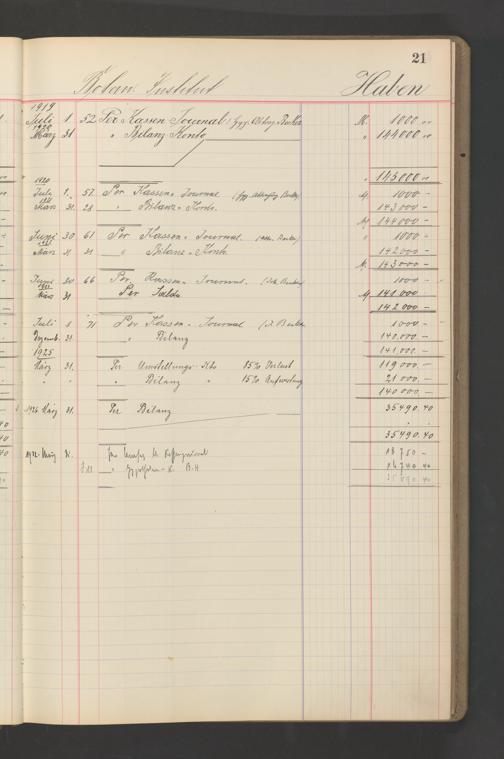 21
Botan. Institut Haben
1919
Juli 1 52 Per Kassen Journal M. 1000 "
1920 März 31 " Bilanz Konto " 144000 "
" 145000 "
1920
Juli 1. 57 Per Kassen Journal M. 1000 -
1921 März 31. 28 " Bilanz Konto. 143000 -
M. 144000 -
Juni 30 61 Per Kassen Journal. 1000 -
März 31 31 " Bilanz Konto 142000 -
M. 143000 -
Juni 30 66 Per Kassen Journal. 1000 -
März 31 Per Saldo M. 141000 -
142000 -
Juli 1 71 Per Kassen Journal 1000 -
Dezemb. 31. " Bilanz 140000 -
1925 141000 -
März 31. Per Umstellungs-Kto 85% Verlust 119000 -
" " " Bilanz " 15% Aufwertung 21000 -
140000 -
1926 März 31. Per Bilanz 35490.40
35490.40
März 31. 18750 -
16740 40